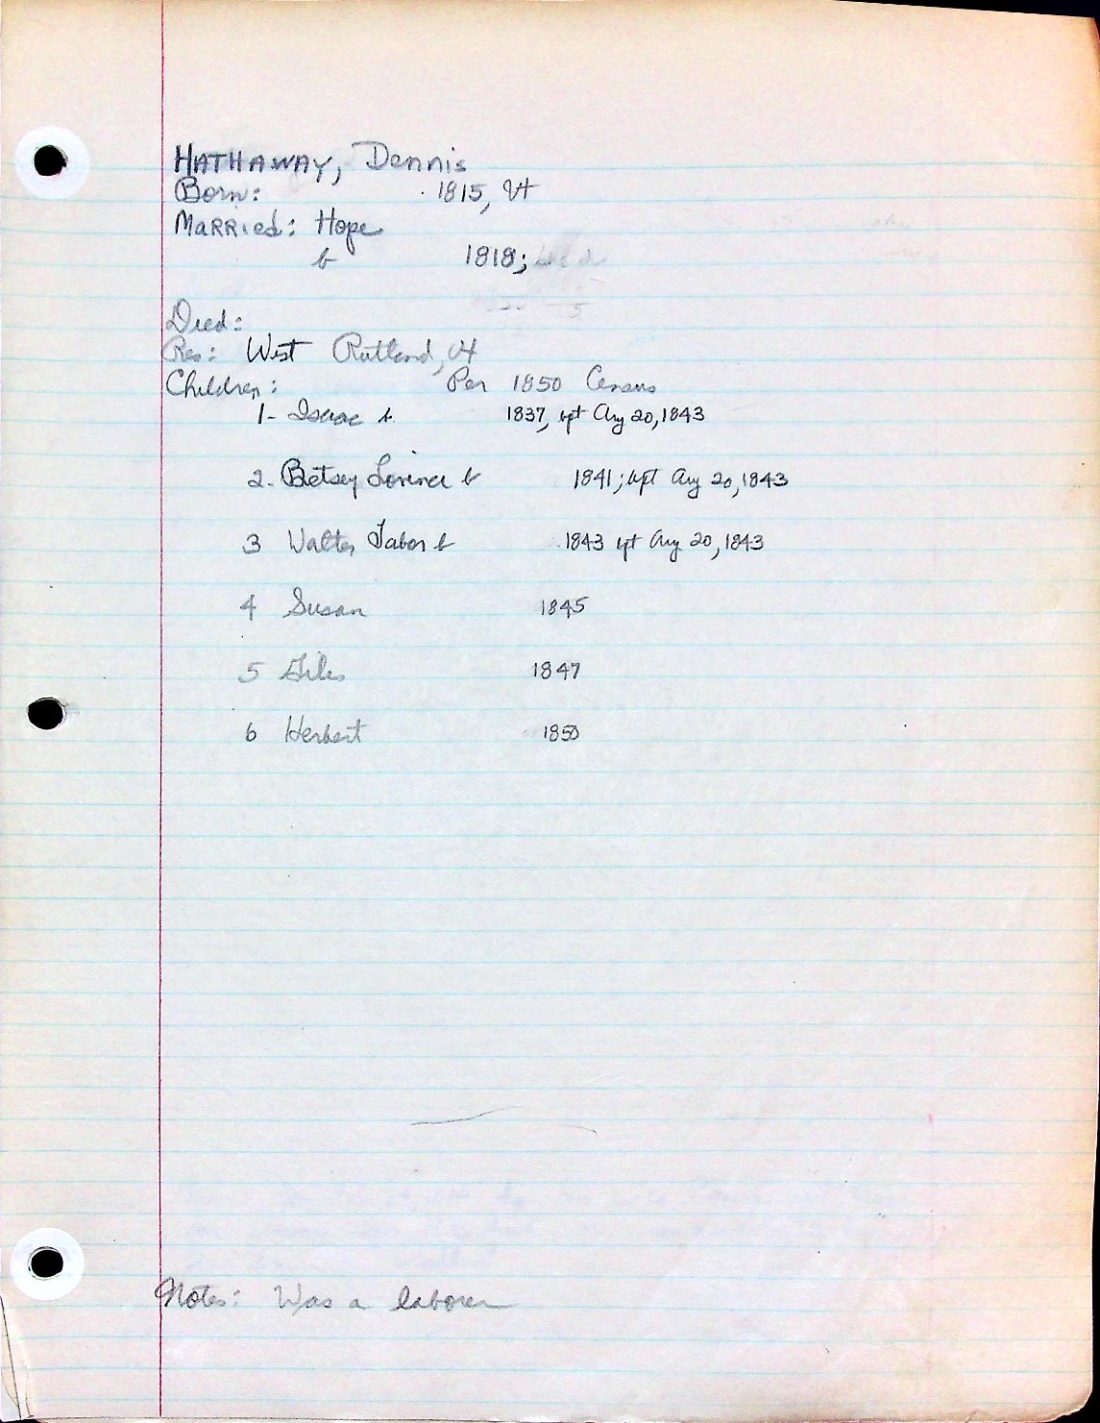 HATHAWAY, Dennis
Born: 1815, Vt
MARRied: Hope
b 1818;
Died:
Res: West Rutland, Vt
Children: Per 1850 Census
1- Isaac b 1837, bpt Aug 20, 1843
2. Betsey b 1841; bpt Aug 20, 1843
3 Walter Tabor b 1843 bpt Aug 20, 1843
4 Susan 1845
5 Giles 1847
6 Herbert 1850
Notes: Was a laborer